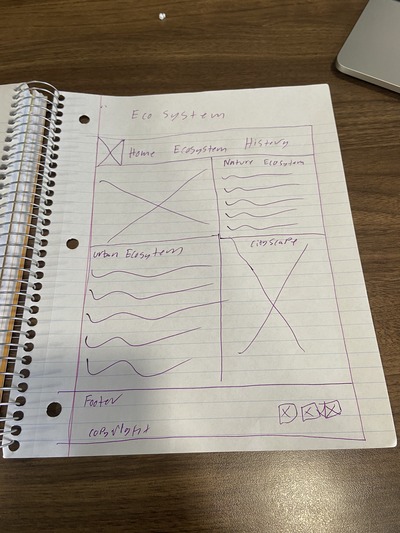 Eco system
Home Ecosystem History
Nature Ecosystem
Urban Ecosystem
Cityscape
Footer
copyright